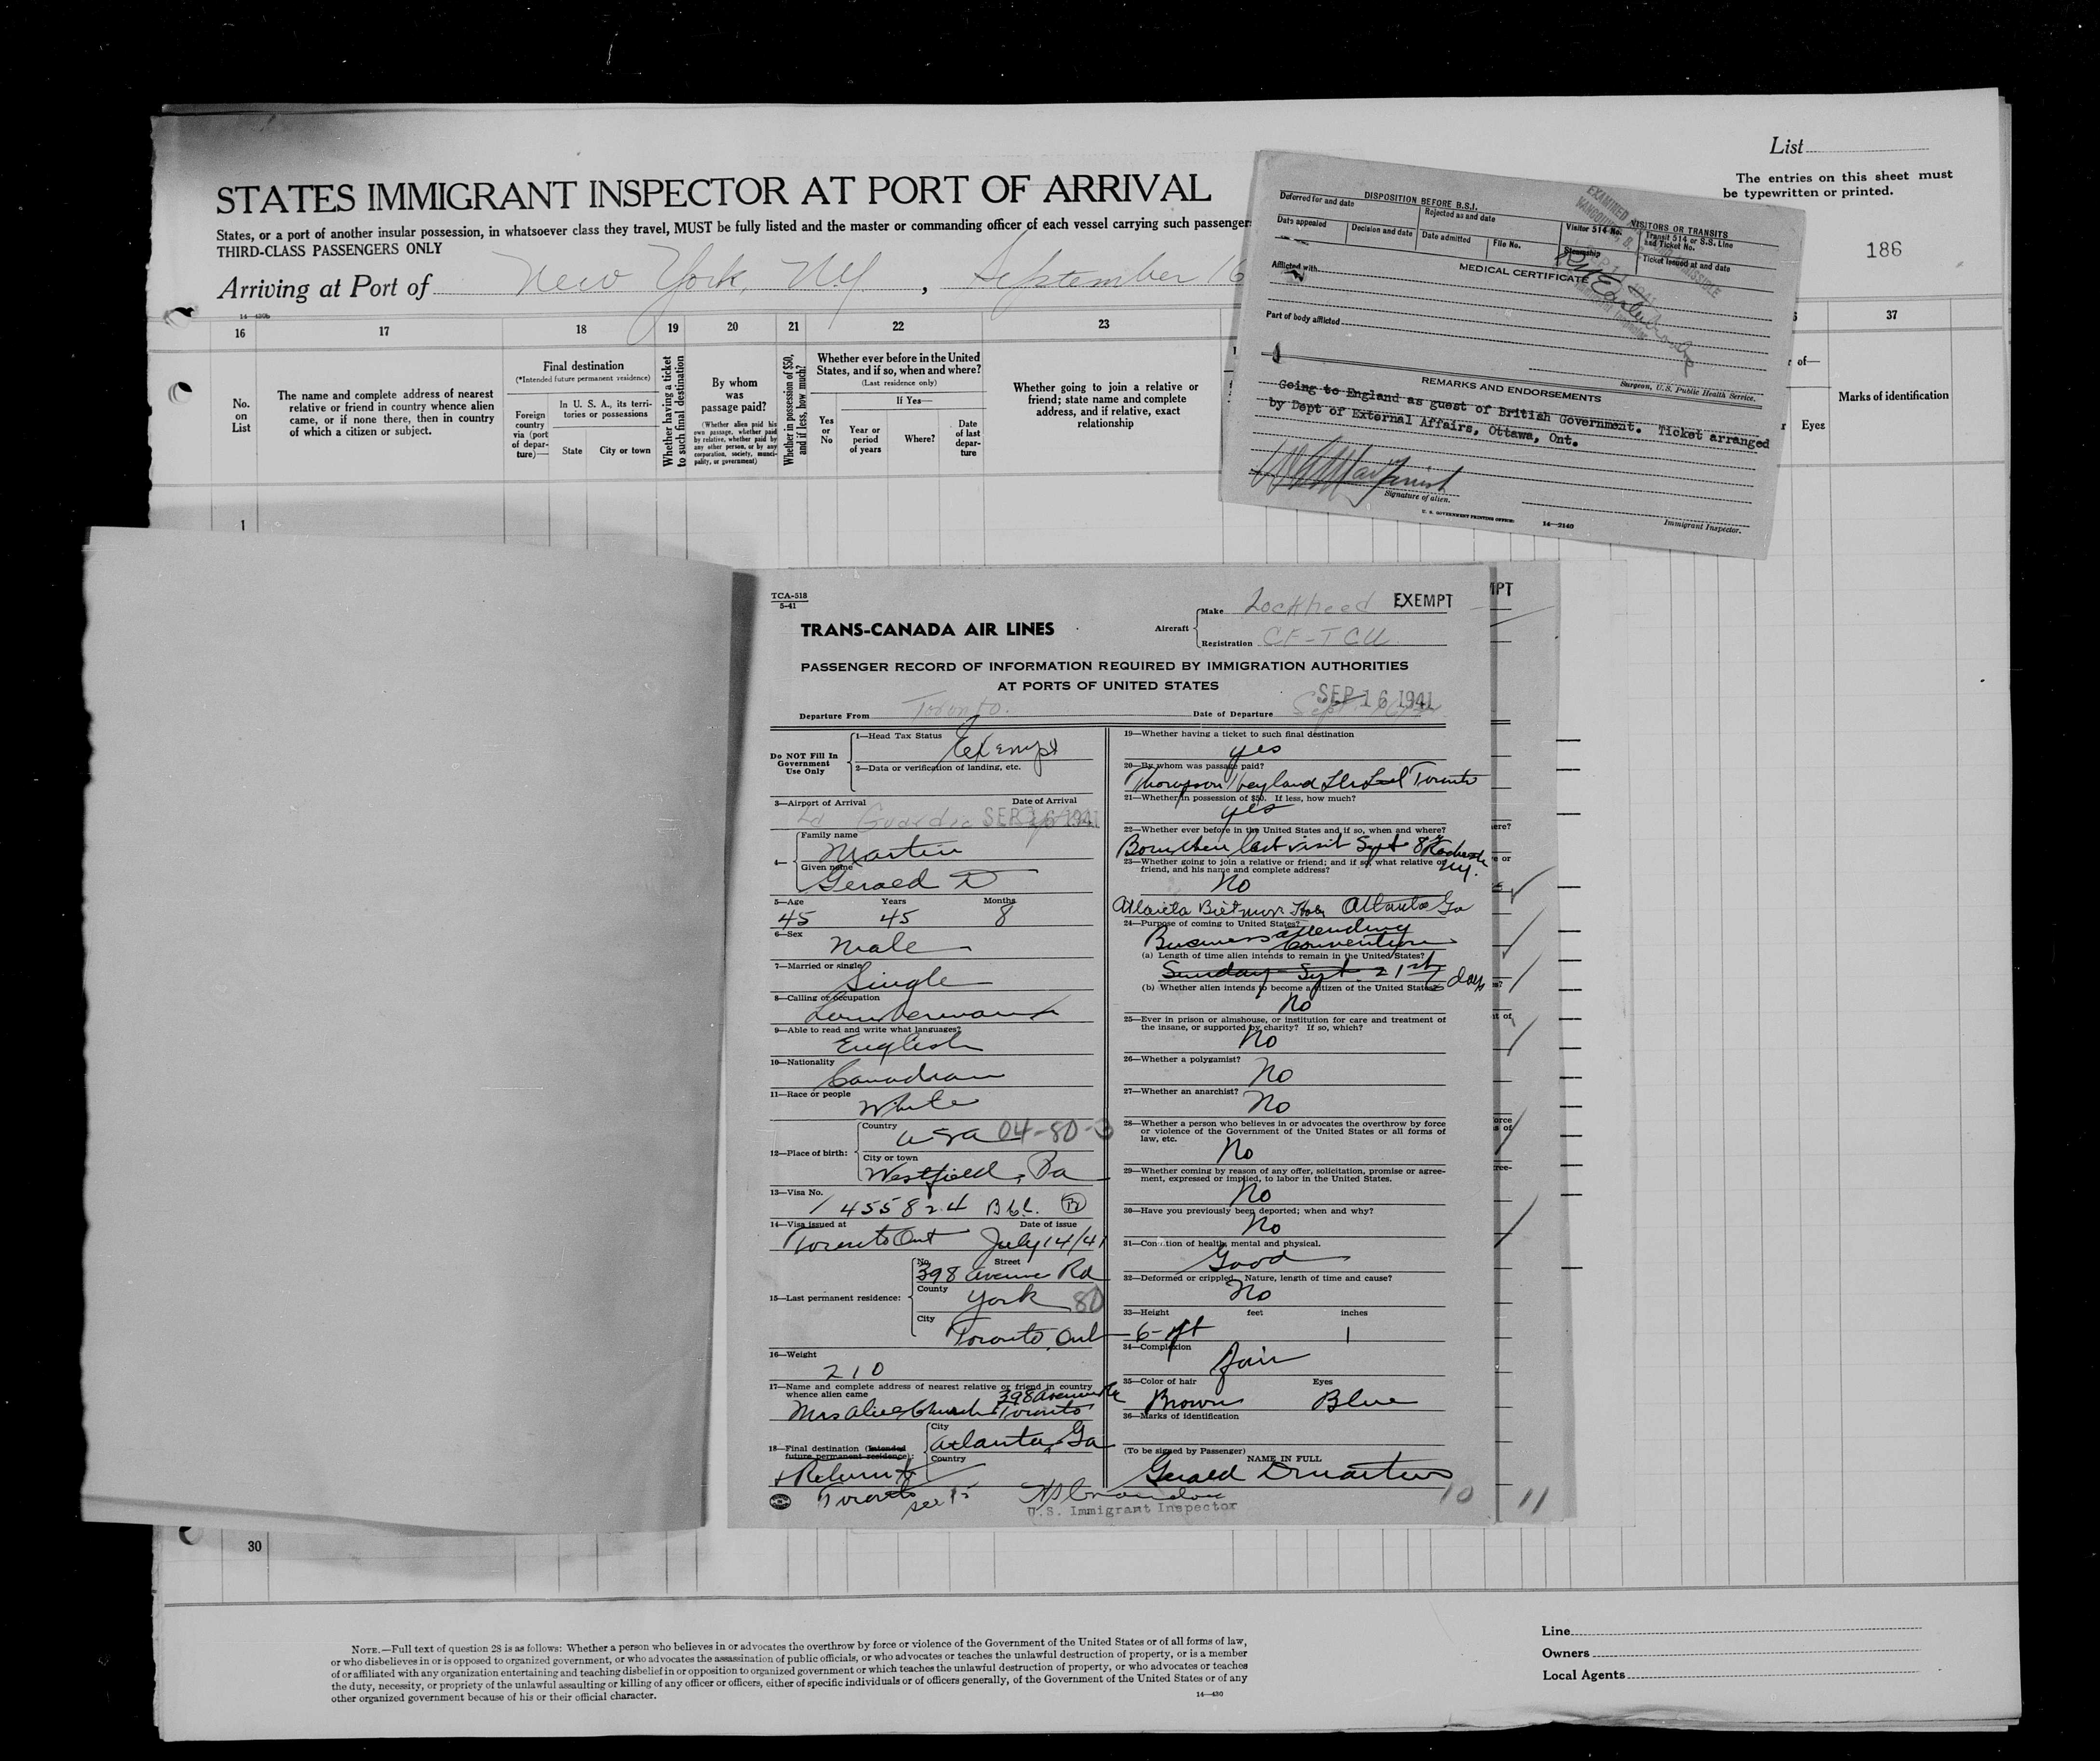 List
The entries on this sheet must
be typewritten or printed.
STATES IMMIGRANT INSPECTOR AT PORT OF ARRIVAL
States, or a port of another insular possession, in whatsoever class they travel, MUST be fully listed and the master or commanding officer of each vessel carrying such passenger
THIRD-CLASS PASSENGERS ONLY
186
Arriving at Port of New York, N.Y. , September 16
14—430b
16 17 18 19 20 21 22 23 37
No. on List
The name and complete address of nearest
relative or friend in country whence alien
came, or if none there, then in country
of which a citizen or subject.
Final destination
(*Intended future permanent residence)
Foreign country via (port of departure)—
In U. S. A., its territories or possessions
State City or town
Whether having a ticket to such final destination
By whom was passage paid?
(Whether alien paid his own passage, whether paid by relative, whether paid by any other person, or by any corporation, society, municipality, or government)
Whether in possession of $50, and if less, how much?
Whether ever before in the United
States, and if so, when and where?
(Last residence only)
Yes or No
If Yes—
Year or period of years
Where?
Date of last departure
Whether going to join a relative or
friend; state name and complete
address, and if relative, exact
relationship
of—
Eyes
Marks of identification
1
30
DISPOSITION BEFORE B.S.I.
Deferred for and date
Rejected as and date
Date appealed
Decision and date
Date admitted
File No.
VISITORS OR TRANSITS
Visitor 514 No.
Transit 514 or S.S. Line
and Ticket No.
Steamship
Ticket issued at and date
EXAMINED
VANCOUVER, B.
MEDICAL CERTIFICATE
Afflicted with
Part of body afflicted
Surgeon, U.S. Public Health Service.
REMARKS AND ENDORSEMENTS
Going to England as guest of British Government. Ticket arranged
by Dept of External Affairs, Ottawa, Ont.
Signature of alien.
U. S. GOVERNMENT PRINTING OFFICE: 14—2140
Immigrant Inspector.
TCA-518
5-41
TRANS-CANADA AIR LINES
Aircraft
Make Lockheed EXEMPT
Registration CF-TCU.
PASSENGER RECORD OF INFORMATION REQUIRED BY IMMIGRATION AUTHORITIES
AT PORTS OF UNITED STATES
Departure From Toronto. Date of Departure SEP 16 1941
Do NOT Fill In
Government
Use Only
1—Head Tax Status Exempt
2—Data or verification of landing, etc.
3—Airport of Arrival Date of Arrival
La Guardia SEP 16 1941
4— Family name
Martin
Given name
Gerald D
5—Age Years Months
45 45 8
6—Sex
Male
7—Married or single
Single
8—Calling or occupation
Lumberman
9—Able to read and write what languages?
English
10—Nationality
Canadian
11—Race or people
White
12—Place of birth:
Country
USA 04-80-3
City or town
Westfield, Pa
13—Visa No.
1455824 B.b.c. B
14—Visa issued at Date of issue
Toronto Ont July 14/41
15—Last permanent residence:
No. Street
398 Avenue Rd
County
York 80
City
Toronto, Ont
16—Weight
210
17—Name and complete address of nearest relative or friend in country
whence alien came 398 Avenue Rd
Mrs Alice Church Toronto
18—Final destination (Intended
future permanent residence):
City
Atlanta, Ga
Country
+ Return to
Toronto
see 15
U.S. Immigrant Inspector
19—Whether having a ticket to such final destination
yes
20—By whom was passage paid?
Thompson Heyland Toronto
21—Whether in possession of $50. If less, how much?
yes
22—Whether ever before in the United States and if so, when and where?
Born there last visit Sept 8 Rochester N.Y.
23—Whether going to join a relative or friend; and if so, what relative or
friend, and his name and complete address?
No
Atlanta Biltmore Hotel Atlanta Ga
24—Purpose of coming to United States?
Business attending
Convention
(a) Length of time alien intends to remain in the United States?
Sunday Sept. 21st 6 days
(b) Whether alien intends to become a citizen of the United States?
No
25—Ever in prison or almshouse, or institution for care and treatment of
the insane, or supported by charity? If so, which?
No
26—Whether a polygamist?
No
27—Whether an anarchist?
No
28—Whether a person who believes in or advocates the overthrow by force
or violence of the Government of the United States or all forms of
law, etc.
No
29—Whether coming by reason of any offer, solicitation, promise or agree-
ment, expressed or implied, to labor in the United States.
No
30—Have you previously been deported; when and why?
No
31—Condition of health, mental and physical.
Good
32—Deformed or crippled. Nature, length of time and cause?
No
33—Height feet inches
6-ft 1
34—Complexion
fair
35—Color of hair Eyes
Brown Blue
36—Marks of identification
(To be signed by Passenger)
NAME IN FULL
Gerald D Martin
10 11
NOTE.—Full text of question 28 is as follows: Whether a person who believes in or advocates the overthrow by force or violence of the Government of the United States or of all forms of law,
or who disbelieves in or is opposed to organized government, or who advocates the assassination of public officials, or who advocates or teaches the unlawful destruction of property, or is a member
of or affiliated with any organization entertaining and teaching disbelief in or opposition to organized government or which teaches the unlawful destruction of property, or who advocates or teaches
the duty, necessity, or propriety of the unlawful assaulting or killing of any officer or officers, either of specific individuals or of officers generally, of the Government of the United States or of any
other organized government because of his or their official character.
14—430
Line
Owners
Local Agents